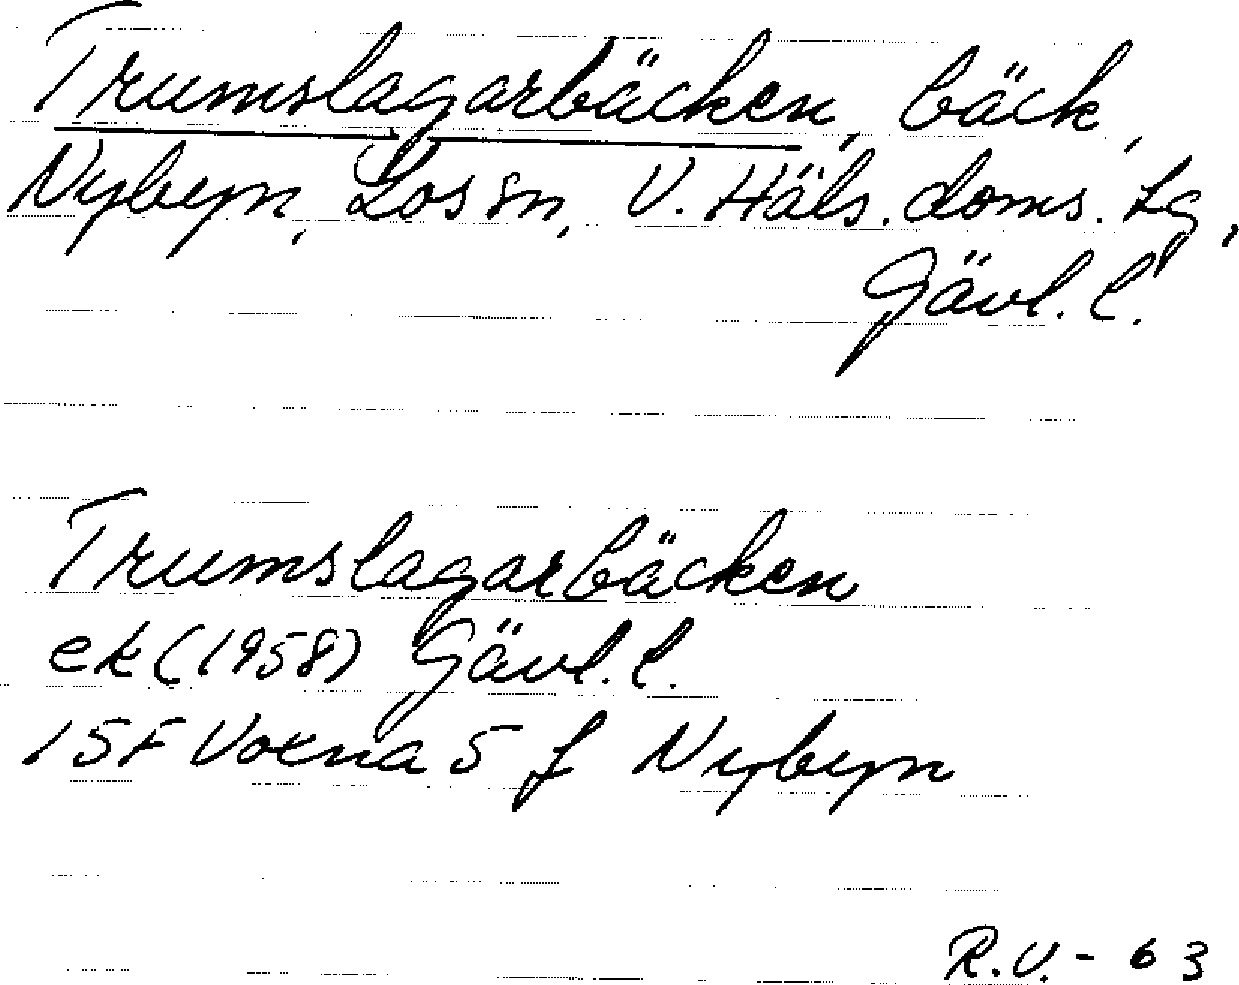 Trumslagarbäcken, bäck,
Nybyn, Los sn, V. Häls. doms. lg,
Gävl. l.
Trumslagarbäcken
ek (1958) Gävl. l.
15F Voxna 5 f Nybyn
R.V. - 63